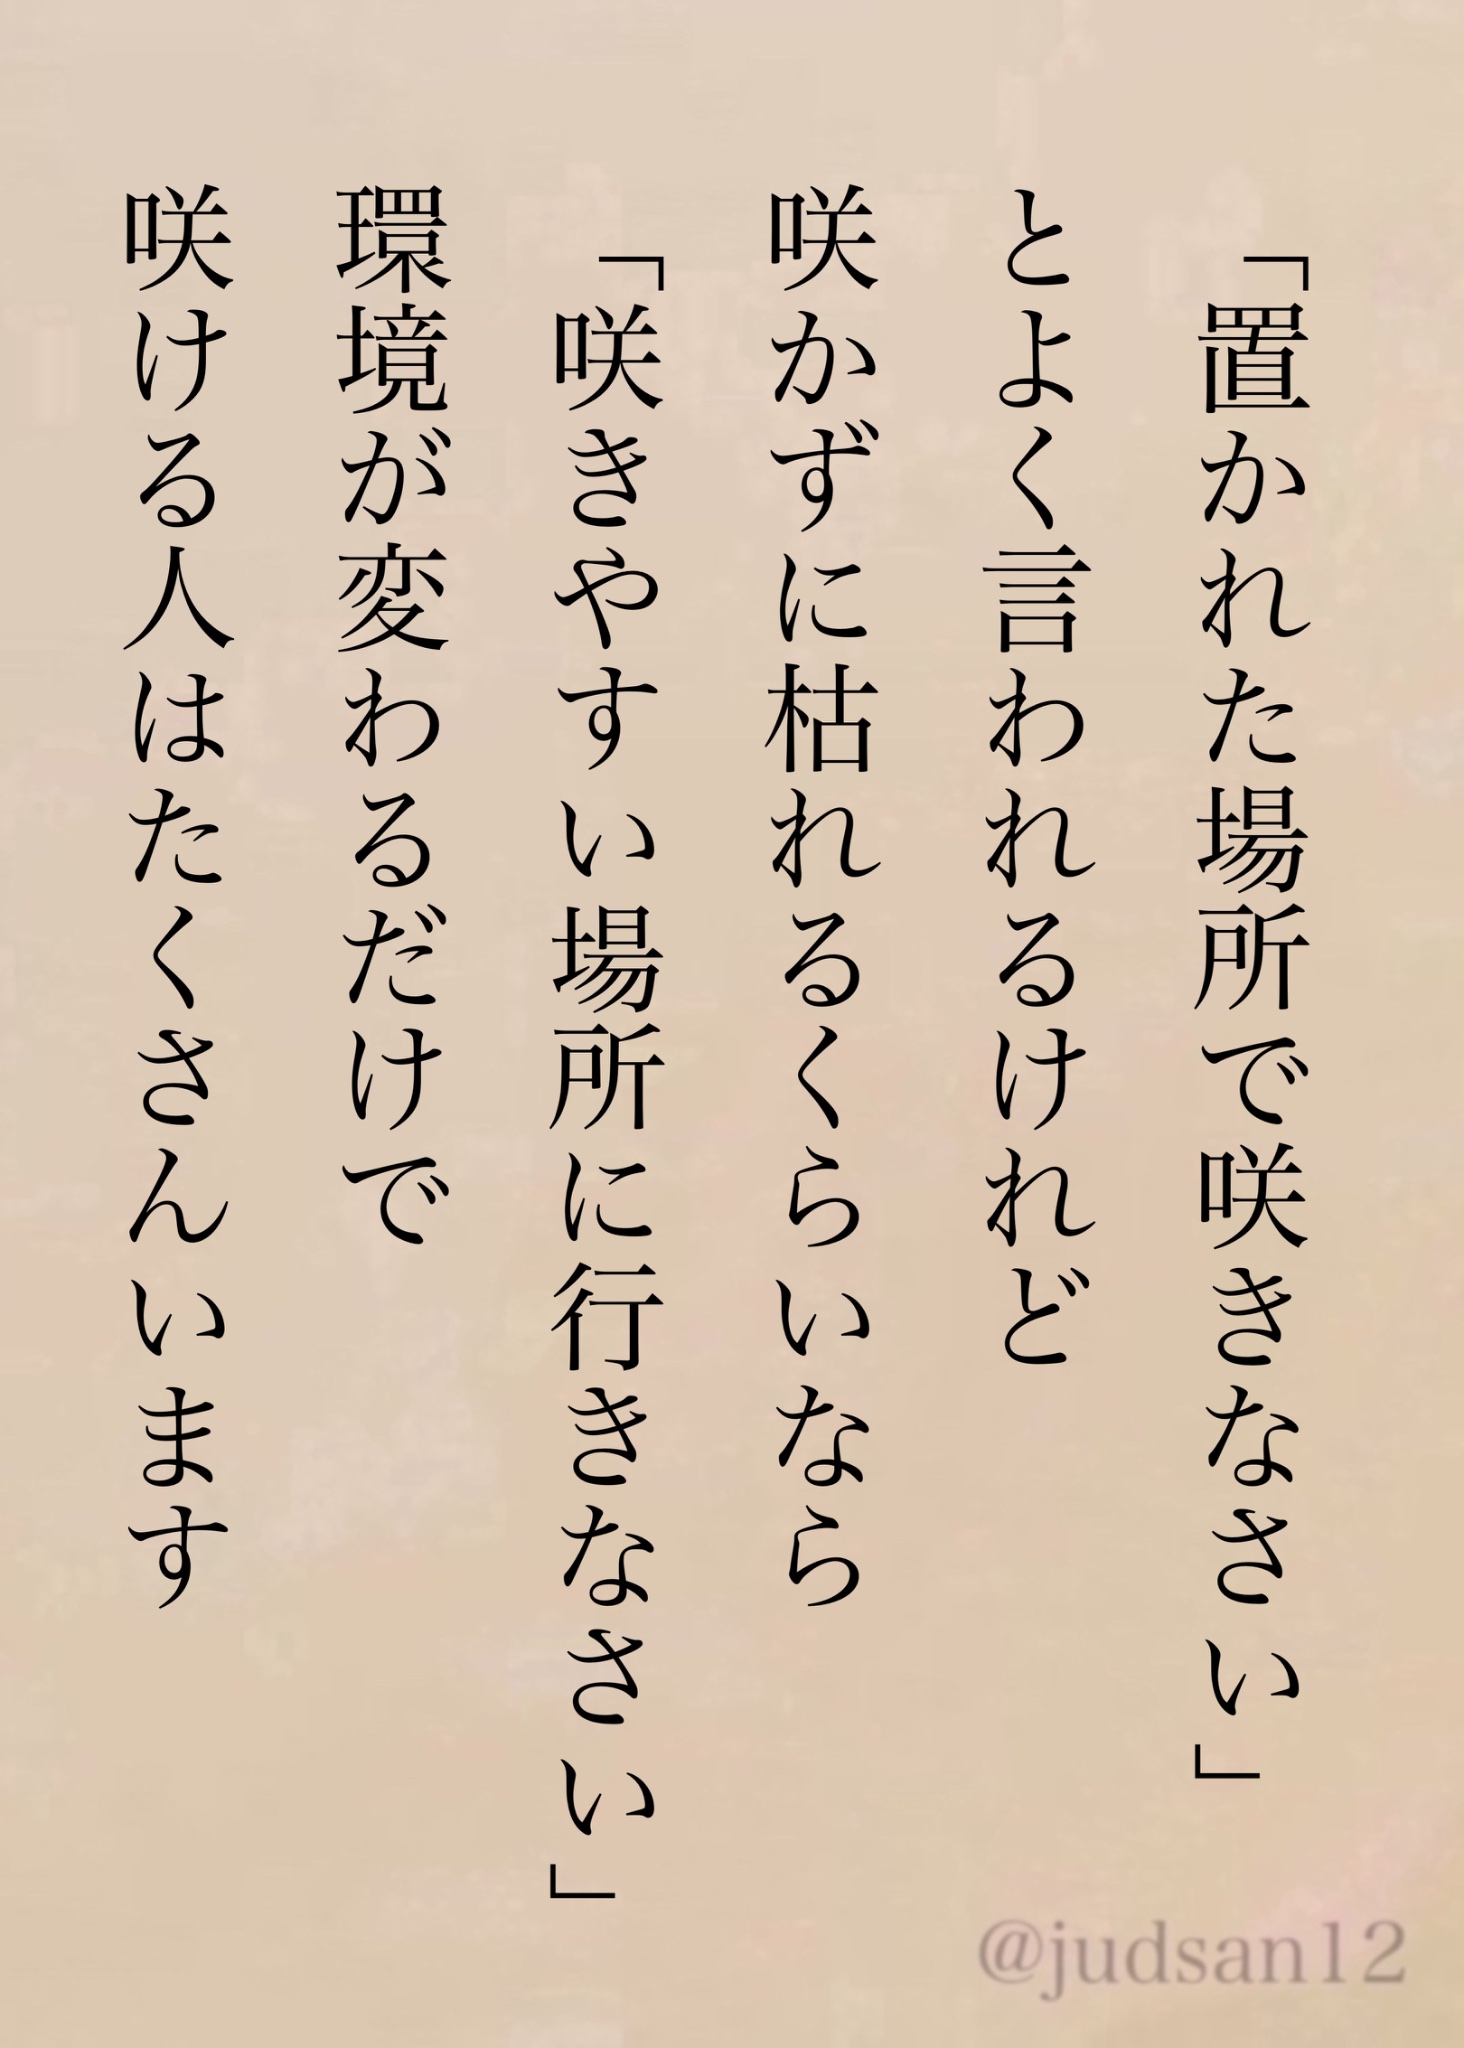 「置かれた場所で咲きなさい」
とよく言われるけれど
咲かずに枯れるくらいなら
「咲きやすい場所に行きなさい」
環境が変わるだけで
咲ける人はたくさんいます
@judsan12